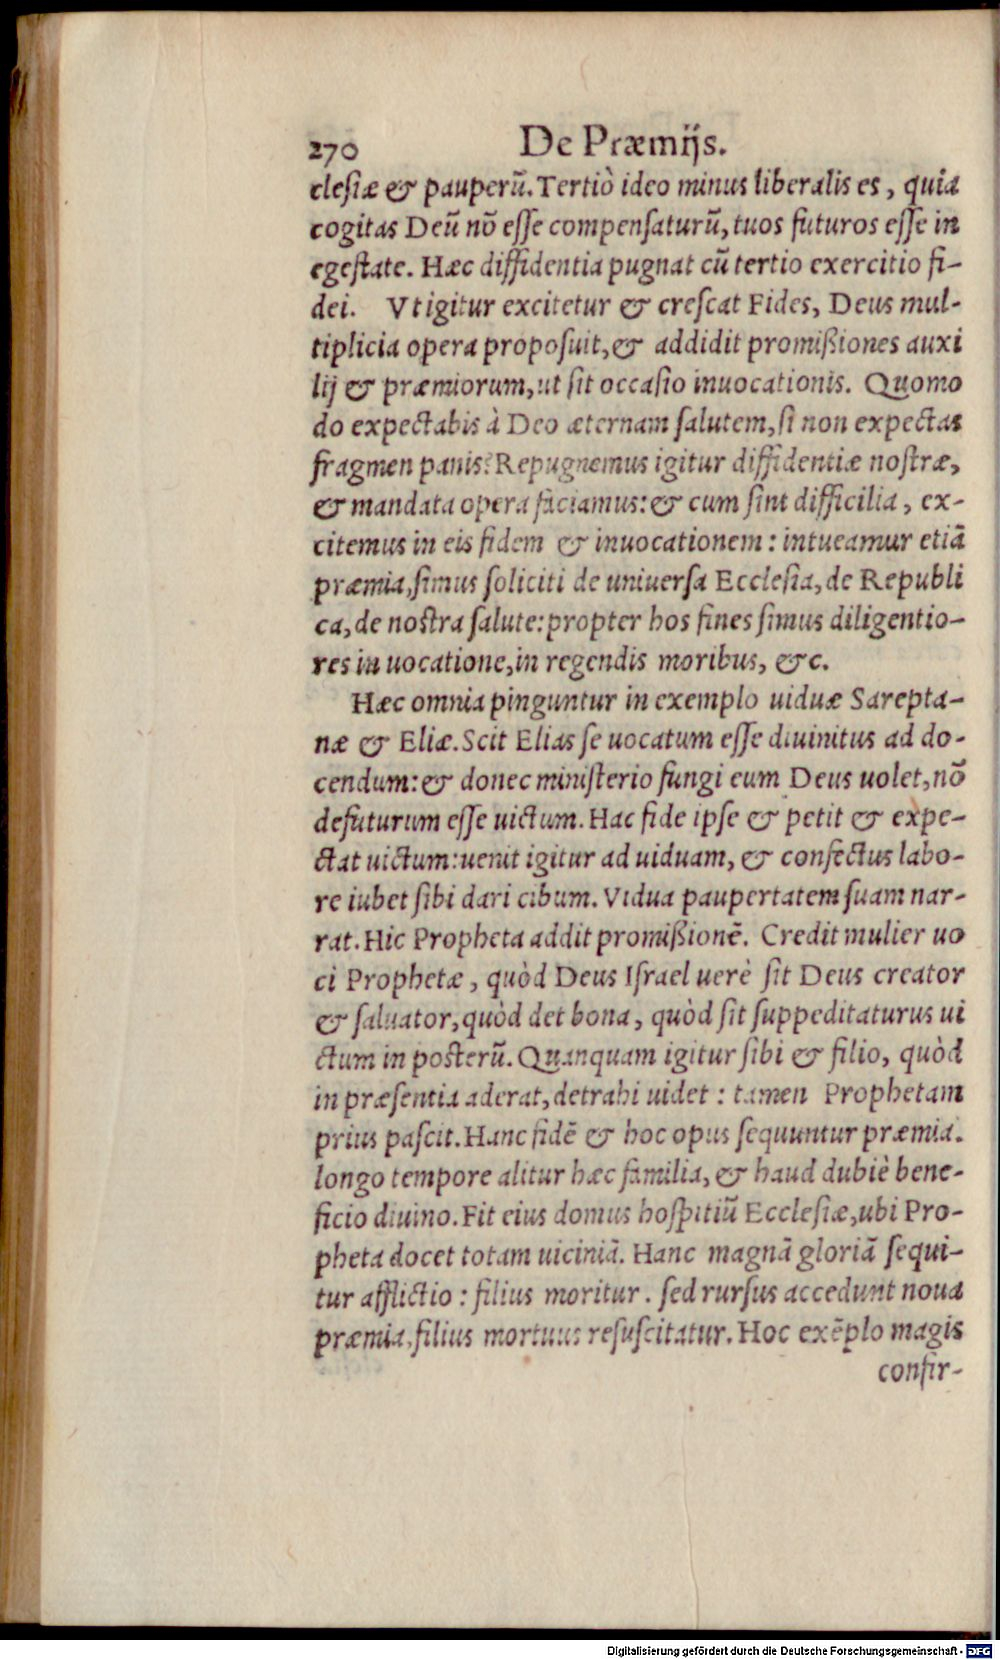 270 De Præmijs.
clesiæ & pauperũ. Tertiò ideo minus liberalis es, quia
cogitas Deũ nõ esse compensaturũ, tuos futuros esse in
egestate. Hæc diffidentia pugnat cũ tertio exercitio fi-
dei. Vt igitur excitetur & crescat Fides, Deus mul-
tiplicia opera proposuit, & addidit promißiones auxi
lij & præmiorum, ut sit occasio inuocationis. Quomo
do expectabis à Deo æternam salutem, si non expectas
fragmen panis? Repugnemus igitur diffidentiæ nostræ,
& mandata opera faciamus: & cum sint difficilia, ex-
citemus in eis fidem & inuocationem: intueamur etiã
præmia, simus soliciti de uniuersa Ecclesia, de Republi
ca, de nostra salute: propter hos fines simus diligentio-
res in uocatione, in regendis moribus, &c.
Hæc omnia pinguntur in exemplo uiduæ Sarepta-
næ & Eliæ. Scit Elias se uocatum esse diuinitus ad do-
cendum: & donec ministerio fungi eum Deus uolet, nõ
defuturum esse uictum. Hac fide ipse & petit & expe-
ctat uictum: uenit igitur ad uiduam, & confectus labo-
re iubet sibi dari cibum. Vidua paupertatem suam nar-
rat. Hic Propheta addit promißionẽ. Credit mulier uo
ci Prophetæ, quòd Deus Israel uerè sit Deus creator
& saluator, quòd det bona, quòd sit suppeditaturus ui
ctum in posterũ. Quanquam igitur sibi & filio, quòd
in præsentia aderat, detrahi uidet: tamen Prophetam
prius pascit. Hanc fidẽ & hoc opus sequuntur præmia.
longo tempore alitur hæc familia, & haud dubiè bene-
ficio diuino. Fit eius domus hospitiũ Ecclesiæ, ubi Pro-
pheta docet totam uiciniã. Hanc magnã gloriã sequi-
tur afflictio: filius moritur. sed rursus accedunt noua
præmia, filius mortuus resuscitatur. Hoc exẽplo magis
confir-
Digitalisierung gefördert durch die Deutsche Forschungsgemeinschaft - DFG